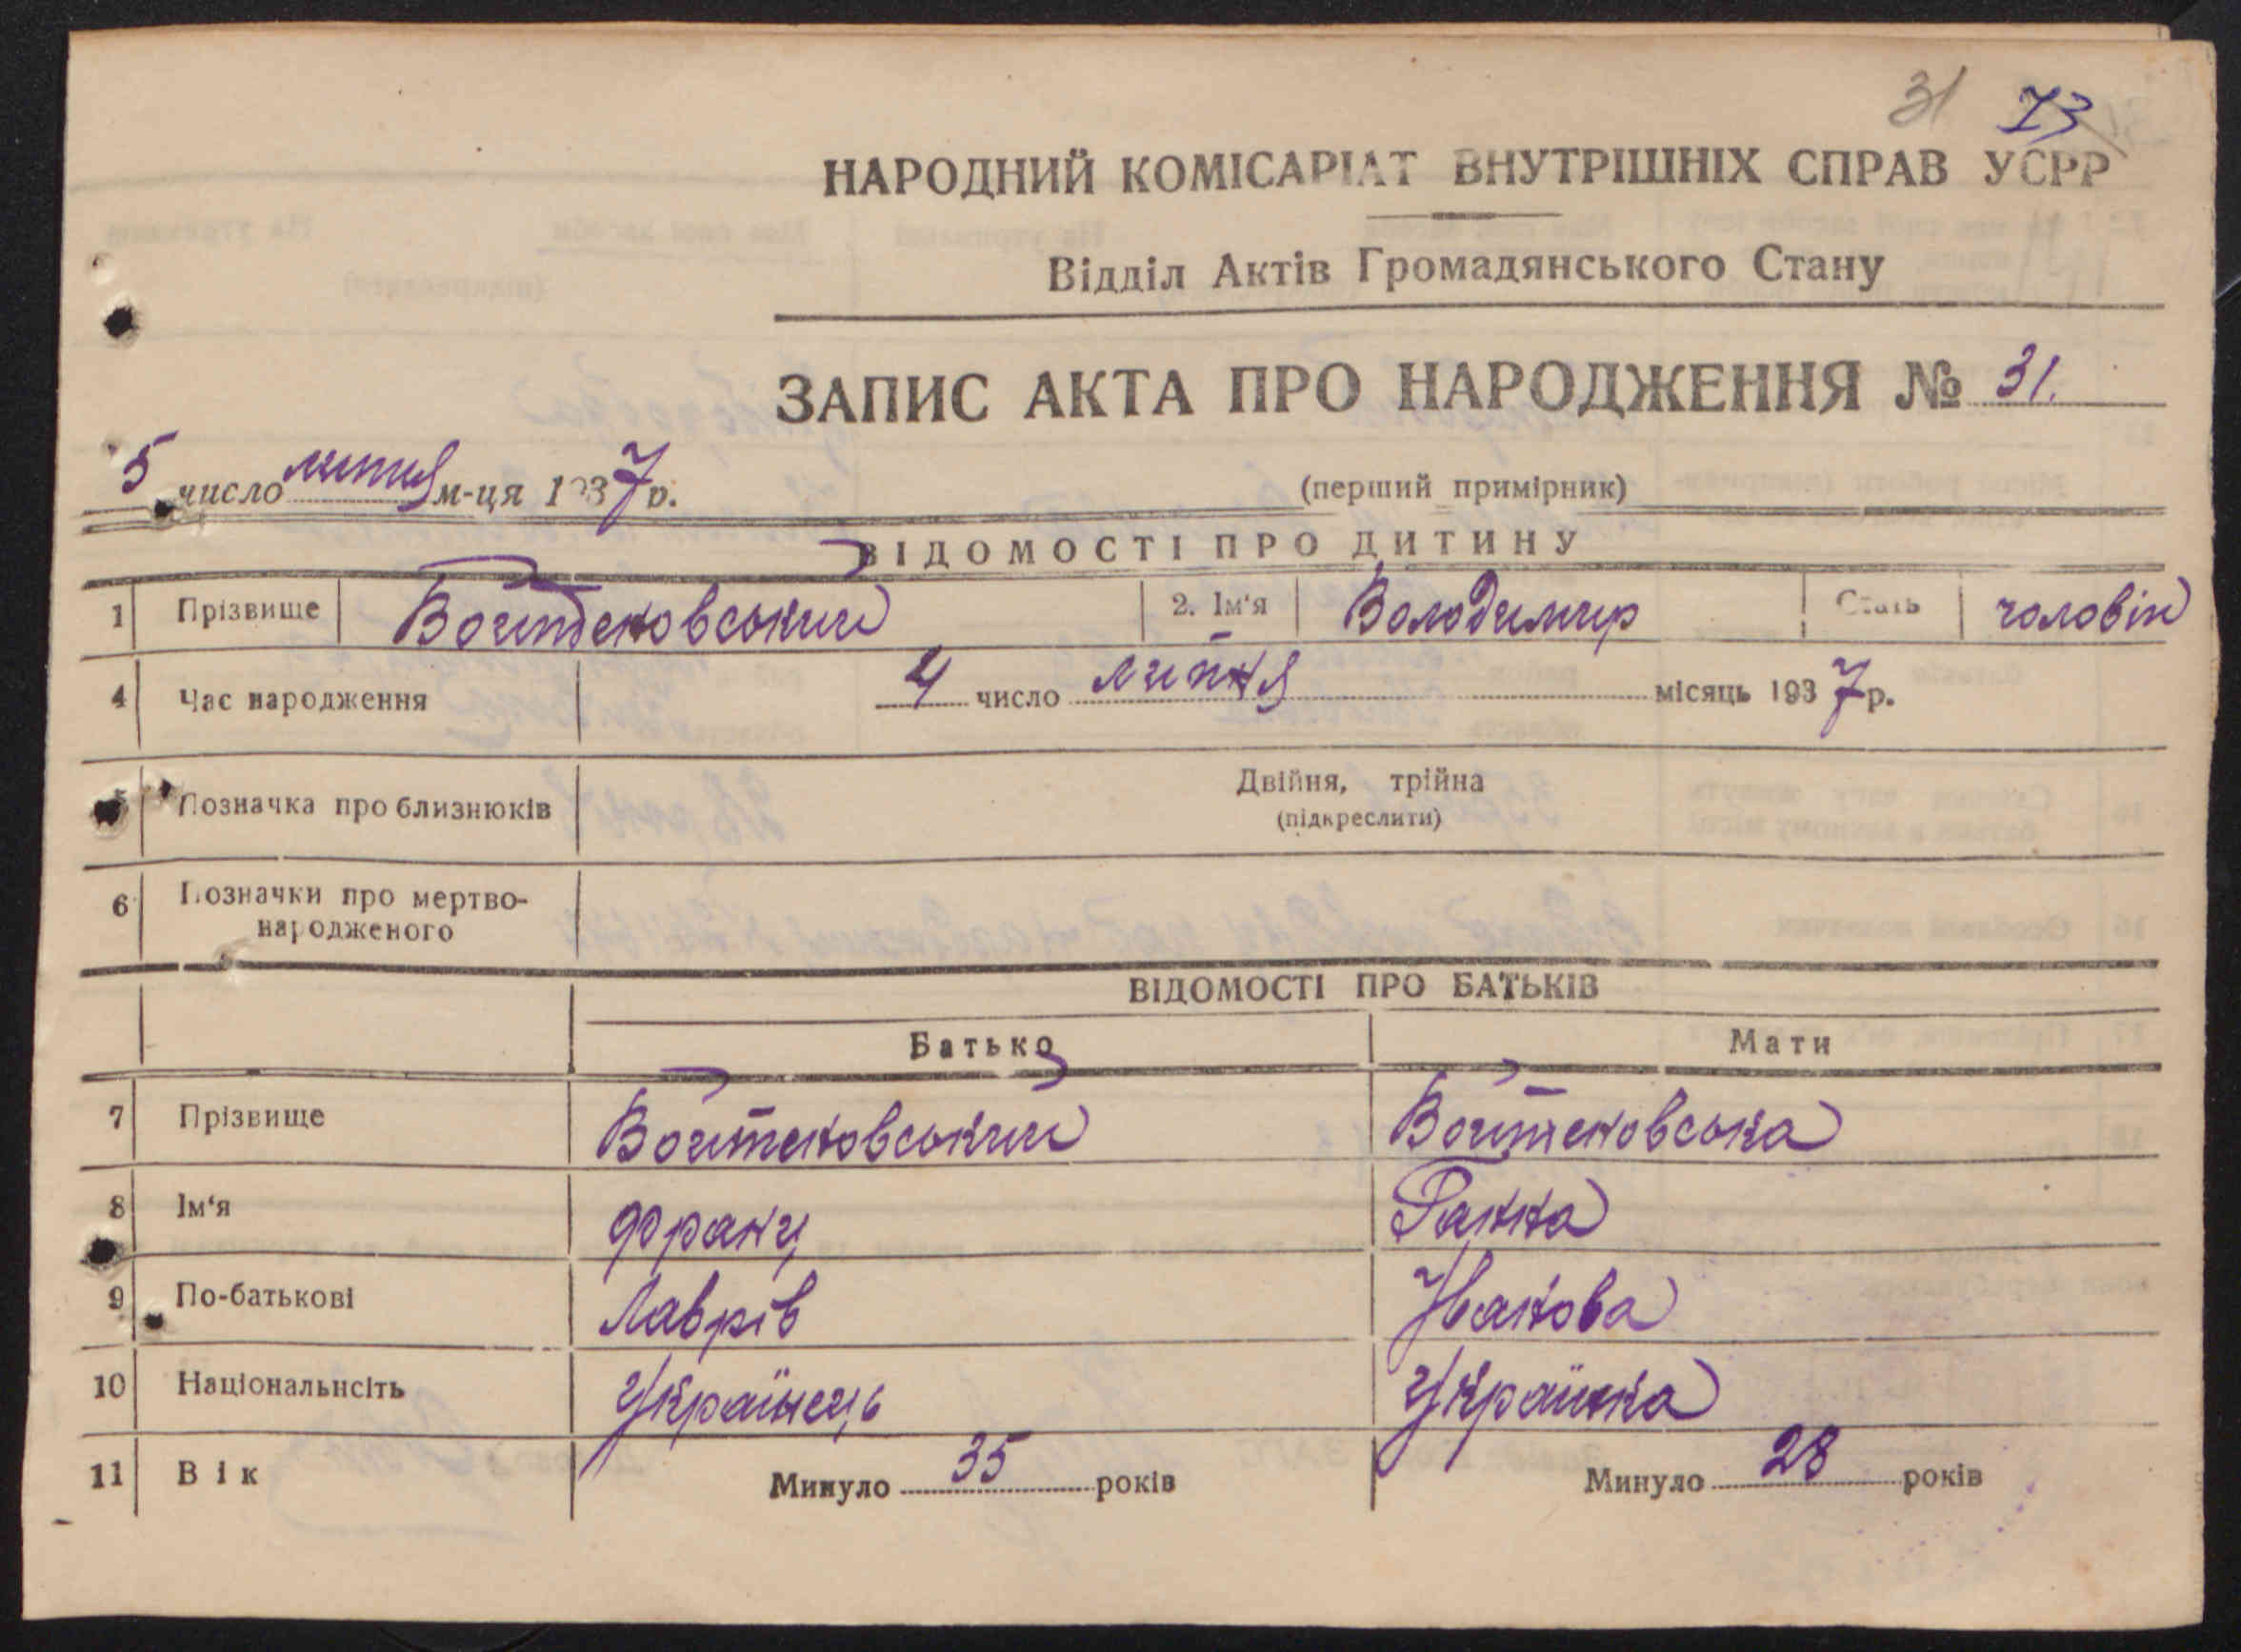 31 73
НАРОДНИЙ КОМІСАРІАТ ВНУТРІШНІХ СПРАВ УСРР
Відділ Актів Громадянського Стану
ЗАПИС АКТА ПРО НАРОДЖЕННЯ № 31.
5 число липня м-ця 1937 р.
(перший примірник)
ВІДОМОСТІ ПРО ДИТИНУ
1 Прізвище Войтековський 2. Ім'я Володимир Стать чоловік
4 Час народження 4 число липня місяць 1937 р.
5 Позначка про близнюків Двійня, трійна
(підкреслити)
6 Позначки про мертво-
народженого
ВІДОМОСТІ ПРО БАТЬКІВ
Батько Мати
7 Прізвище Войтековський Войтековська
8 Ім'я Франц Ганна
9 По-батькові Лаврів Іванова
10 Національнсіть Українець Українка
11 Вік Минуло 35 років Минуло 28 років